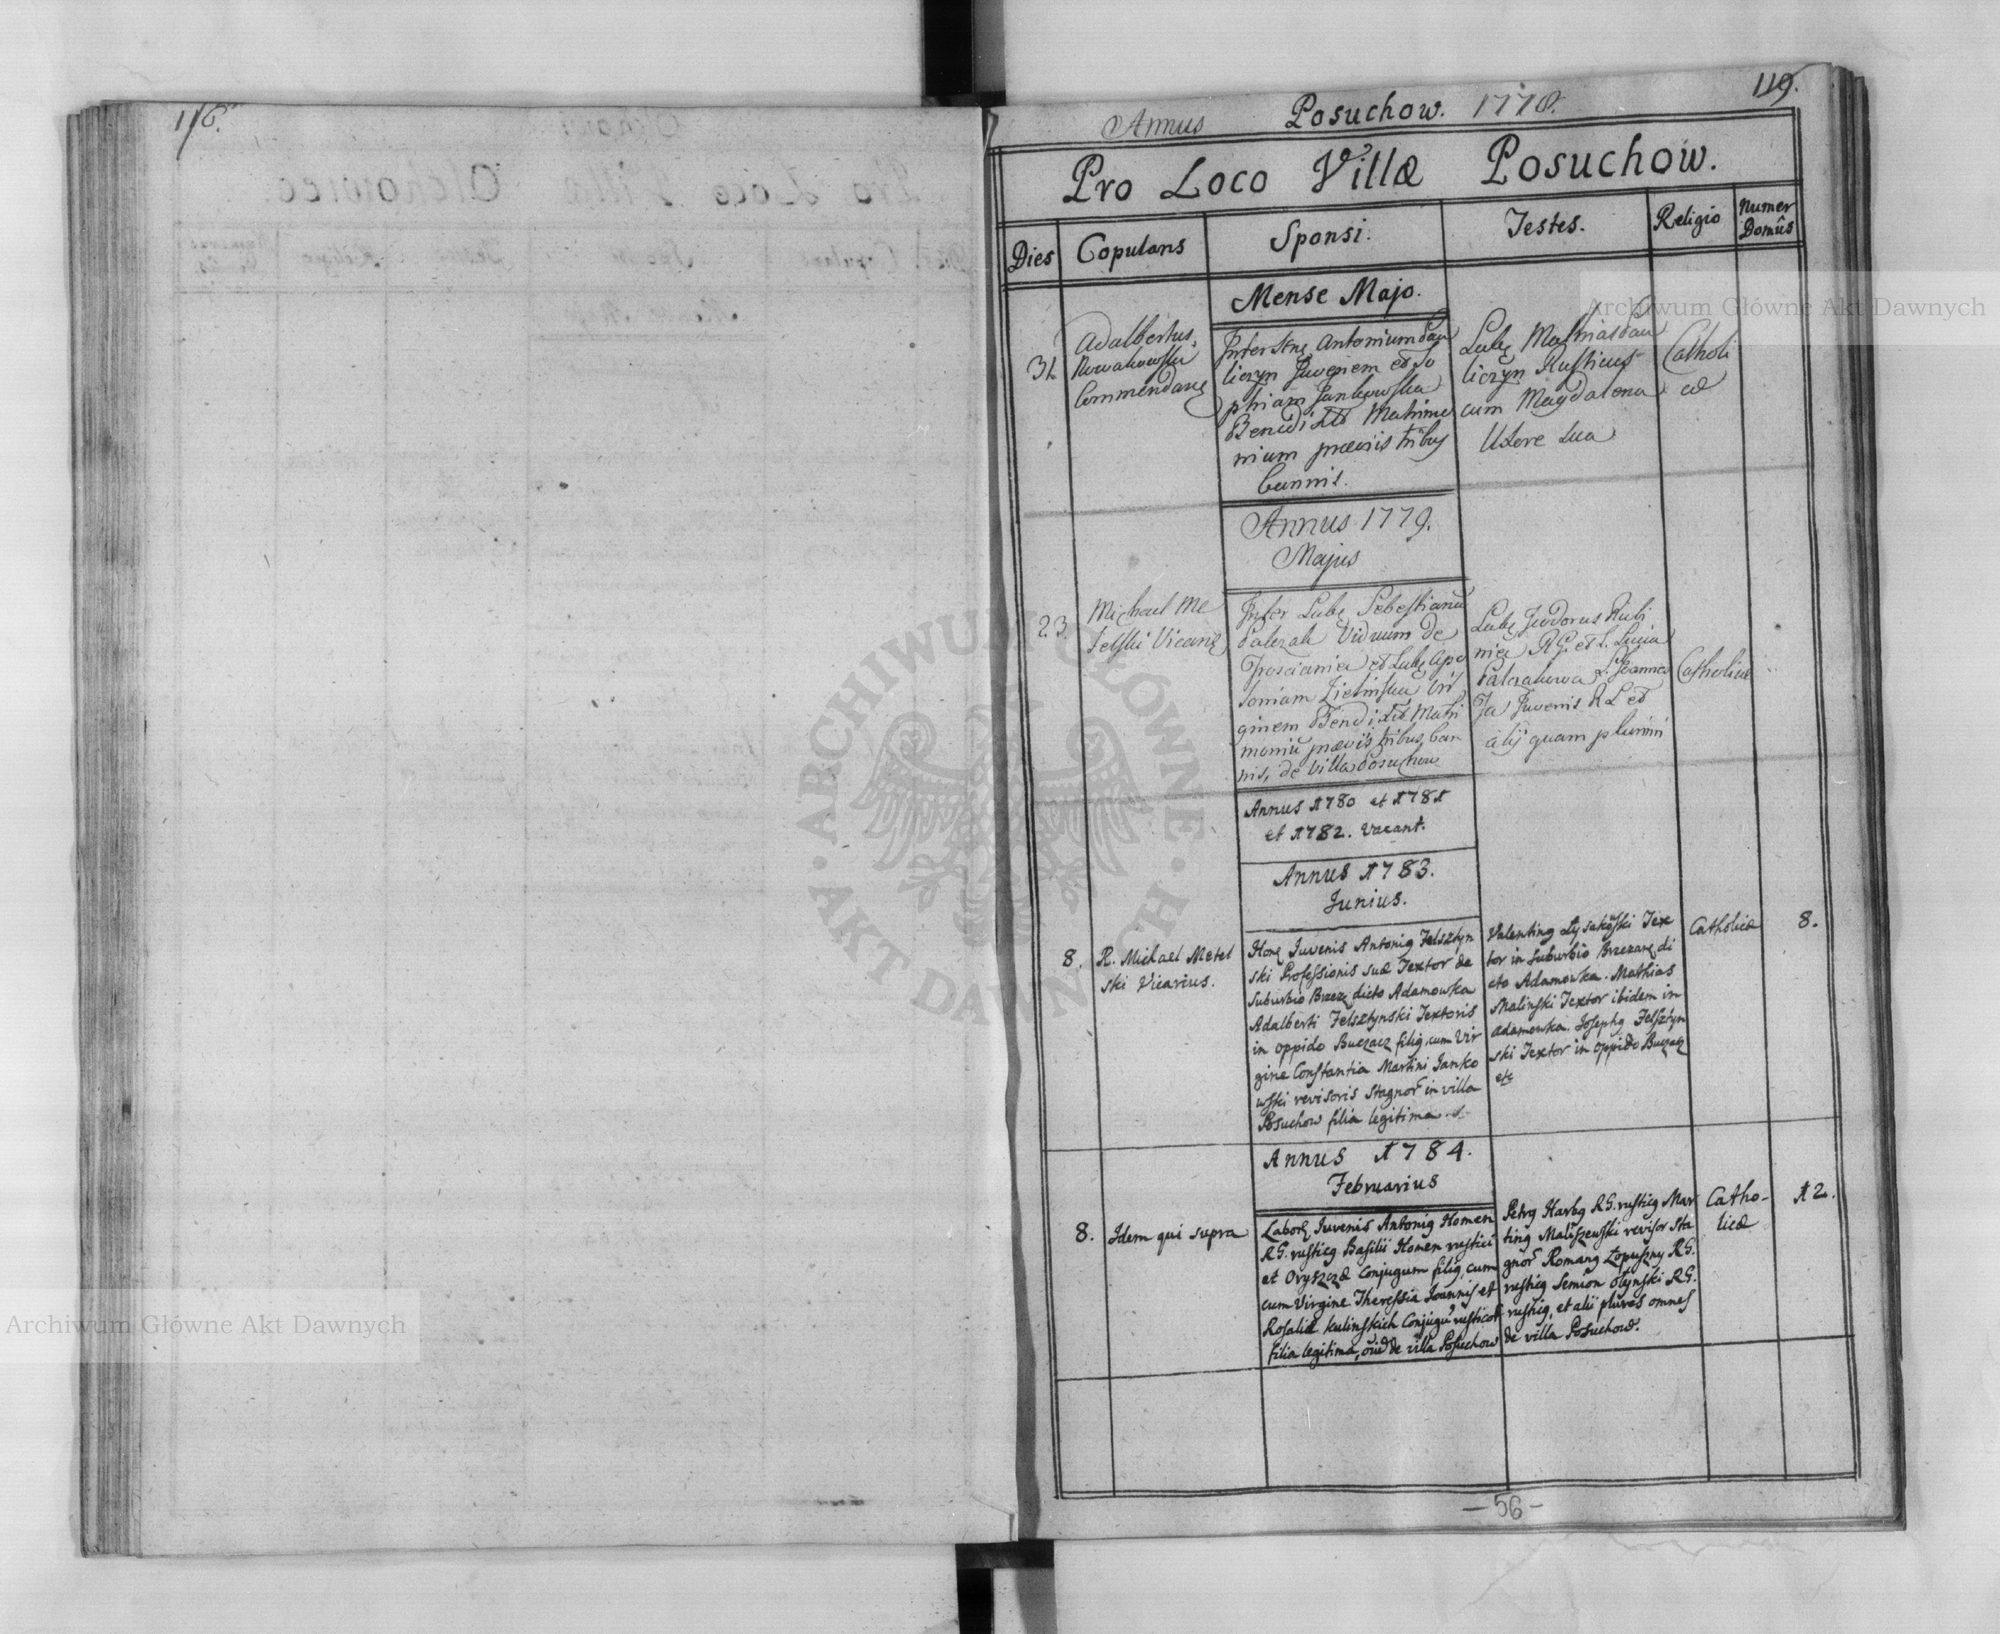 116.
119.
Annus Posuchow. 1778.
Pro Loco Villæ Posuchow.
Dies Copulans Sponsi. Testes. Religio Numer Domûs
Mense Majo.
31.
Adalbertus
Nowakowski
Commendarius
Antonium Pau
liczyn Juvenem et So
phiam Jankowska
Benedixit Matrimo
nium præviis tribus
bannis.
Mathias Pau
liczyn Rusticus
cum Magdalena
Uxore sua
Catholi
cæ
Annus 1779.
Majus
23.
Michael Me
telski Vicarius
Inter Lab. Sebestianu
Palczak Viduum de
Troscianiec et Lab. Apo
loniam Zielinska Vir
ginem Benedixit Matri
moniu præviis tribus ban
nis, de Villa Posuchow
Lab. Teodorus Rubi
RG. et L. Lucia
Palczakowa L. Joannes
Juvenis RL et
alij quam plurimi
Catholicæ
Annus 1780 et 1781
et 1782. Vacant.
Annus 1783.
Junius.
8.
R. Michael Metel
ski Vicarius.
Hon. Juvenis Antonig Felsztyn
ski Professionis suæ Textor de
Suburbio Brzez. dicto Adamowka
Adalberti Felsztynski Textoris
in oppido Buczacz filig, cum Vir
gine Constantia Martini Janko
wski revisoris Stagnor in villa
Posuchow filia legitima.
Valenting Łysakoski Tex
tor in suburbio Brzezan. di
cto Adamowka. Mathias
Malinski Textor ibidem in
Adamowka. Josephg Felsztyn
ski Textor in oppido Buczacz
etc
Catholicæ
8.
Annus 1784.
Februarius
8.
Idem qui supra
Labor. Juvenis Antonig Homen
RG. rusticg Basilii Homen rustici
et Oryszczæ Conjugum filig, cum
cum Virgine Theressia Joannis et
Rosaliæ Kulinskich Conjugu rusticor
filia legitima, oēs de villa Posuchow
Petrg Harbg RG. rusticg Mar
ting Maliszewski revisor Sta
gnor Romang Łopuszny RG.
rusticg Semion Olynski RG.
rusticg, et alii plures omnes
de villa Posuchow.
Catho-
licæ
12.
-56-
Archiwum Główne Akt Dawnych
Archiwum Główne Akt Dawnych
ARCHIWUM GŁÓWNE AKT DAWNYCH